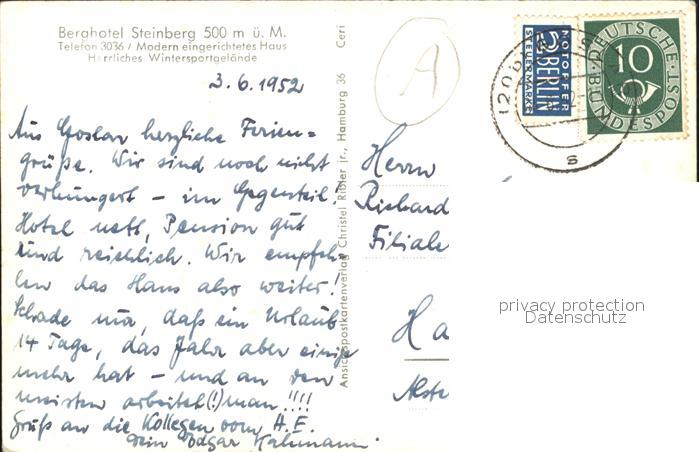 Berghotel Steinberg 500 m ü. M.
Telefon 3036 / Modern eingerichtetes Haus
Herrliches Wintersportgelände
3.6.1952
Aus Goslar herzliche Ferien=
grüße. Wir sind noch nicht
verhungert – im Gegenteil!
Hotel nett, Pension gut
und reichlich. Wir empfeh-
len das Haus also weiter!
Schade nur, daß ein Urlaub
14 Tage, das Jahr aber einige
mehr hat – und an den
meisten arbeitet(!) man!!!!
Gruß an die Kollegen vom A.E.
Dein Edgar
Ansichtspostkartenverlag Christel Ribler jr., Hamburg 36 Ceri
A
NOTOPFER
2 BERLIN
STEUERMARKE
DEUTSCHE BUNDESPOST
10
(20b)
s
Herrn
Richard
Filiale
Ha
Alste
privacy protection
Datenschutz